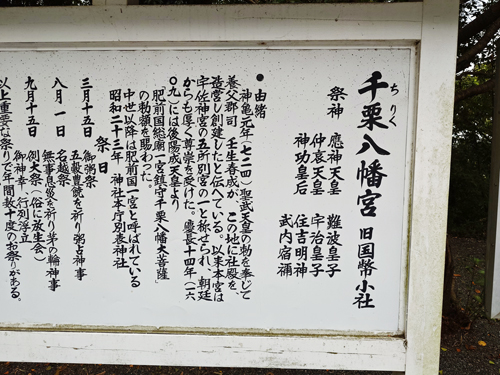 千栗八幡宮 旧国幣小社
ちりく
祭神 應神天皇 難波皇子
仲哀天皇 宇治皇子
神功皇后 住吉明神
武内宿禰
●由緒
神亀元年(七二四)聖武天皇の勅を奉じて
養父郡司 壬生春成が、この地に社殿を
造営し創建したと伝へている。以来本宮は
宇佐神宮の五所別宮の一と称せられ、朝廷
からも厚く尊崇を受けた。慶長十四年(一六
〇九)には後陽成天皇より
「肥前国総廟一宮鎮守千栗八幡大菩薩」
の勅額を賜わった。
中世以降は肥前国一宮と呼ばれている
昭和二十三年 神社本庁別表神社
祭日
三月十五日 御粥祭
五穀豊饒を祈り粥占神事
八月一日 名越祭
無事息災を祈り茅の輪神事
九月十五日 例大祭(俗に放生会)
御神幸(行列浮立
以上重要な祭りで年間数十度のお祭りがある。